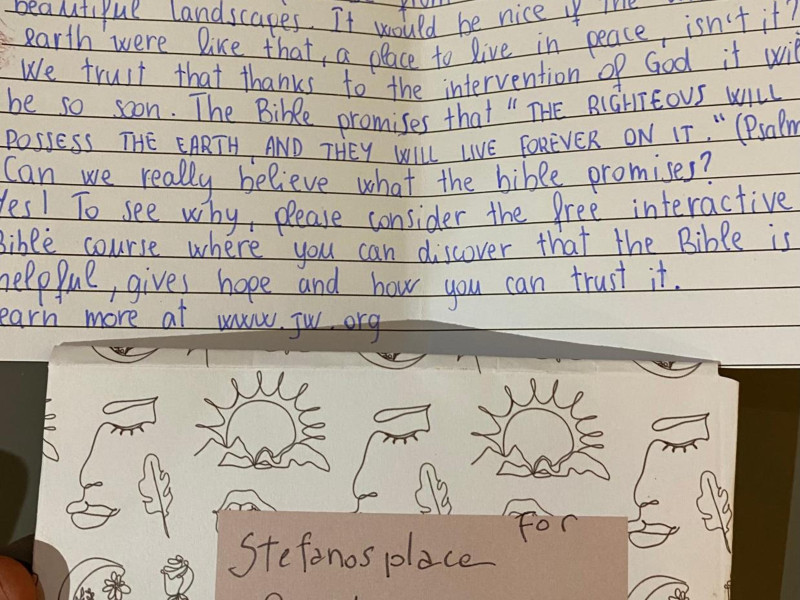 beautiful landscapes. It would be nice if the
earth were like that, a place to live in peace, isn't it?
We trust that thanks to the intervention of God it will
be so soon. The Bible promises that "THE RIGHTEOUS WILL
POSSESS THE EARTH, AND THEY WILL LIVE FOREVER ON IT." (Psalm
Can we really believe what the bible promises?
Yes! To see why, please consider the free interactive
Bible course where you can discover that the Bible is
helpful, gives hope and how you can trust it.
earn more at www.jw.org
For
Stefanos place